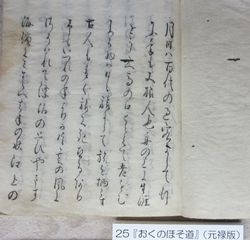 月日は百代の過客にして行
かふ年も又旅人也舟の上に生涯
をうかへ馬の口とらえて老をむ
かふる物は日々旅にして旅を栖とす
古人も多く旅に死せるあり
予もいつれの年よりか片雲の風に
さそはれて漂泊の思ひやます
海浜にさすらへ去年の秋江上の
25『おくのほそ道』(元禄版)